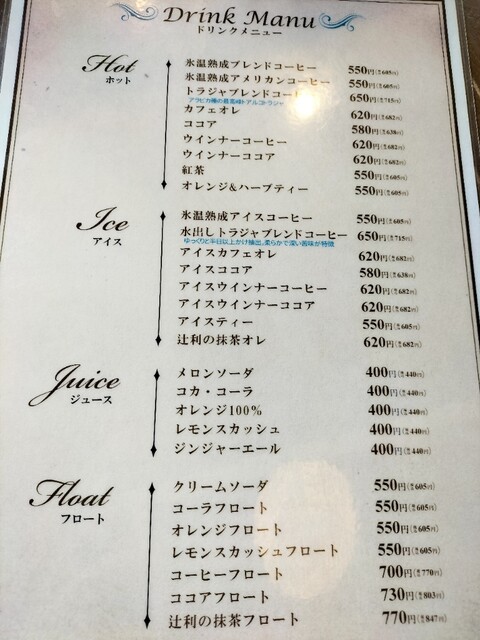 Drink Manu
ドリンクメニュー
Hot
ホット
氷温熟成ブレンドコーヒー 550円(税込605円)
氷温熟成アメリカンコーヒー 550円(税込605円)
トラジャブレンドコーヒー 650円(税込715円)
アラビカ種の最高峰トアルコトラジャ
カフェオレ 620円(税込682円)
ココア 580円(税込638円)
ウインナーコーヒー 620円(税込682円)
ウインナーココア 620円(税込682円)
紅茶 550円(税込605円)
オレンジ&ハーブティー 550円(税込605円)
Ice
アイス
氷温熟成アイスコーヒー 550円(税込605円)
水出しトラジャブレンドコーヒー 650円(税込715円)
ゆっくりと半日以上かけ抽出。柔らかで深い苦味が特徴
アイスカフェオレ 620円(税込682円)
アイスココア 580円(税込638円)
アイスウインナーコーヒー 620円(税込682円)
アイスウインナーココア 620円(税込682円)
アイスティー 550円(税込605円)
辻利の抹茶オレ 620円(税込682円)
Juice
ジュース
メロンソーダ 400円(税込440円)
コカ・コーラ 400円(税込440円)
オレンジ100% 400円(税込440円)
レモンスカッシュ 400円(税込440円)
ジンジャーエール 400円(税込440円)
Float
フロート
クリームソーダ 550円(税込605円)
コーラフロート 550円(税込605円)
オレンジフロート 550円(税込605円)
レモンスカッシュフロート 550円(税込605円)
コーヒーフロート 700円(税込770円)
ココアフロート 730円(税込803円)
辻利の抹茶フロート 770円(税込847円)